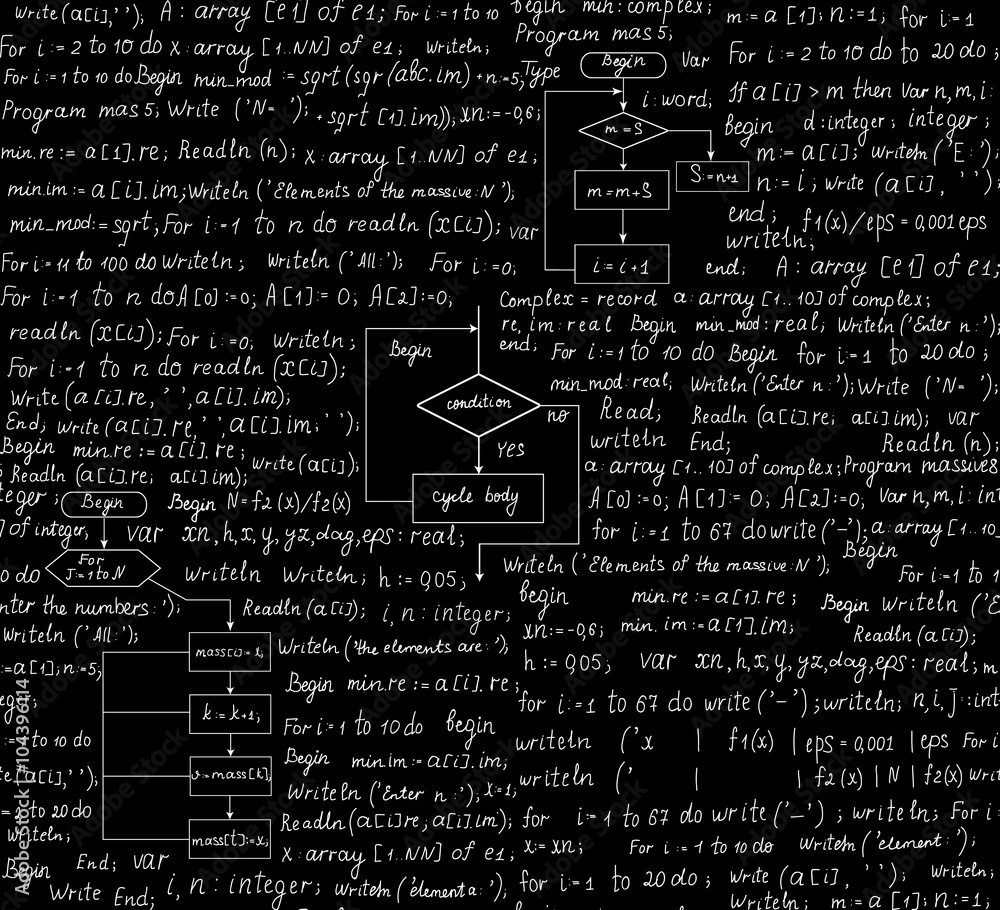 Write(a[i],' '); A : array [e1] of e1; For i := 1 to 10
begin min: complex;
m:= a[1]; n:=1; for i:=1
For i := 2 to 10 do x : array [1..NN] of e1; Writeln;
Program mas 5;
For i := 2 to 10 do to 20 do ;
For i := 1 to 10 do Begin min_mod := sqrt(sqr(abc.im) + n:=5;
Type
Begin
Var
If a[i] > m then Var n, m, i:
Program mas 5; Write ('N= '); + sqrt [1].im)); xn:=-0,6;
i : word;
m = S
begin d:integer; integer ;
min.re := a[1].re; Readln (n); x : array [1..NN] of e1;
S:=n+1
m:= a[i]; Writeln ('E : ');
min.im := a[i].im; Writeln ('Elements of the massive:N ');
m=m+S
n:= i ; write (a[i], ' ');
min_mod:= sqrt; For i:=1 to n do readln (x[i]); var
end ;
f1(x)/eps = 0,001 eps
writeln;
For i := 11 to 100 do Writeln ; Writeln ('All: '); For i :=0;
i:= i+1
end; A : array [e1] of e1;
For i:=1 to n do A[0]:=0; A[1]:= 0; A[2]:=0;
Complex = record a: array [1..10] of complex;
readln (x[i]); For i:=0; Writeln ;
Begin
re, im: real Begin min_mod: real; Writeln('Enter n : ');
end; For i:=1 to 10 do Begin for i:=1 to 20 do ;
For i:=1 to n do readln (x[i]);
min_mod: real; Writeln('Enter n : '); Write ('N= ');
Write(a [i].re, ' ', a[i].im);
condition
no
Read; Readln (a[i].re; a[i].im); var
End; Write (a[i].re, ' ', a[i].im; ' ');
writeln End; Readln (n);
Begin min.re := a[i].re ; Write (a[i]);
Yes
a : array [1..10] of complex; Program massive8
Readln (a[i].re; a[i].im);
cycle body
A[0]:=0; A[1]:= 0; A[2]:=0; Var n, m, i: int
teger ;
Begin
Begin N=f2(x)/f2(x)
] of integer; var xn, h, x, y, yz, dag, eps : real;
for i:=1 to 67 do write('-'); a: array [1..10
For
J:=1 to N
Begin
o do
Writeln Writeln; h := 0,05 ;
Writeln ('Elements of the massive:N ');
For i:=1 to 1
nter the numbers : ');
Readln (a[i]); i, n: integer;
begin min.re := a[1].re ; Begin Writeln ('E
Writeln ('All: ');
xn:=-0,6; min. im := a[1].im; Readln (a[i]);
:=a[1]; n:=5;
mass[i]:= x;
Writeln ('the elements are: ');
h := 0,05; var xn, h, x, y, yz, dag, eps : real; m
Begin min.re := a[i].re ;
for i:=1 to 67 do write ('-') ; writeln; n, i, j :int
k:= k+1;
For i:=1 to 10 do begin
to 10 do
writeln ('x | f1(x) | eps = 0,001 | eps For i
Begin min.im := a[i].im;
v:=mass[k];
a[i],' ');
writeln (' | | f2(x) | N | f2(x)
Writeln ('Enter n : '); x:=1;
to 20 do
Readln(a[i]re ; a[i].im'); for i:=1 to 67 do write ('-') ; writeln; For i
Writeln;
mass[t]:=x;
x : array [1..NN] of e1; x:= xn; For i := 1 to 10 do Writeln ('element : ');
Begin
End; var
Write End; i, n : integer; Writeln ('element a : '); for i := 1 to 20 do ; Write (a[i], ' '); Writeln;
Writeln; m := a [1]; n:=1;
Adobe Stock | #104396114